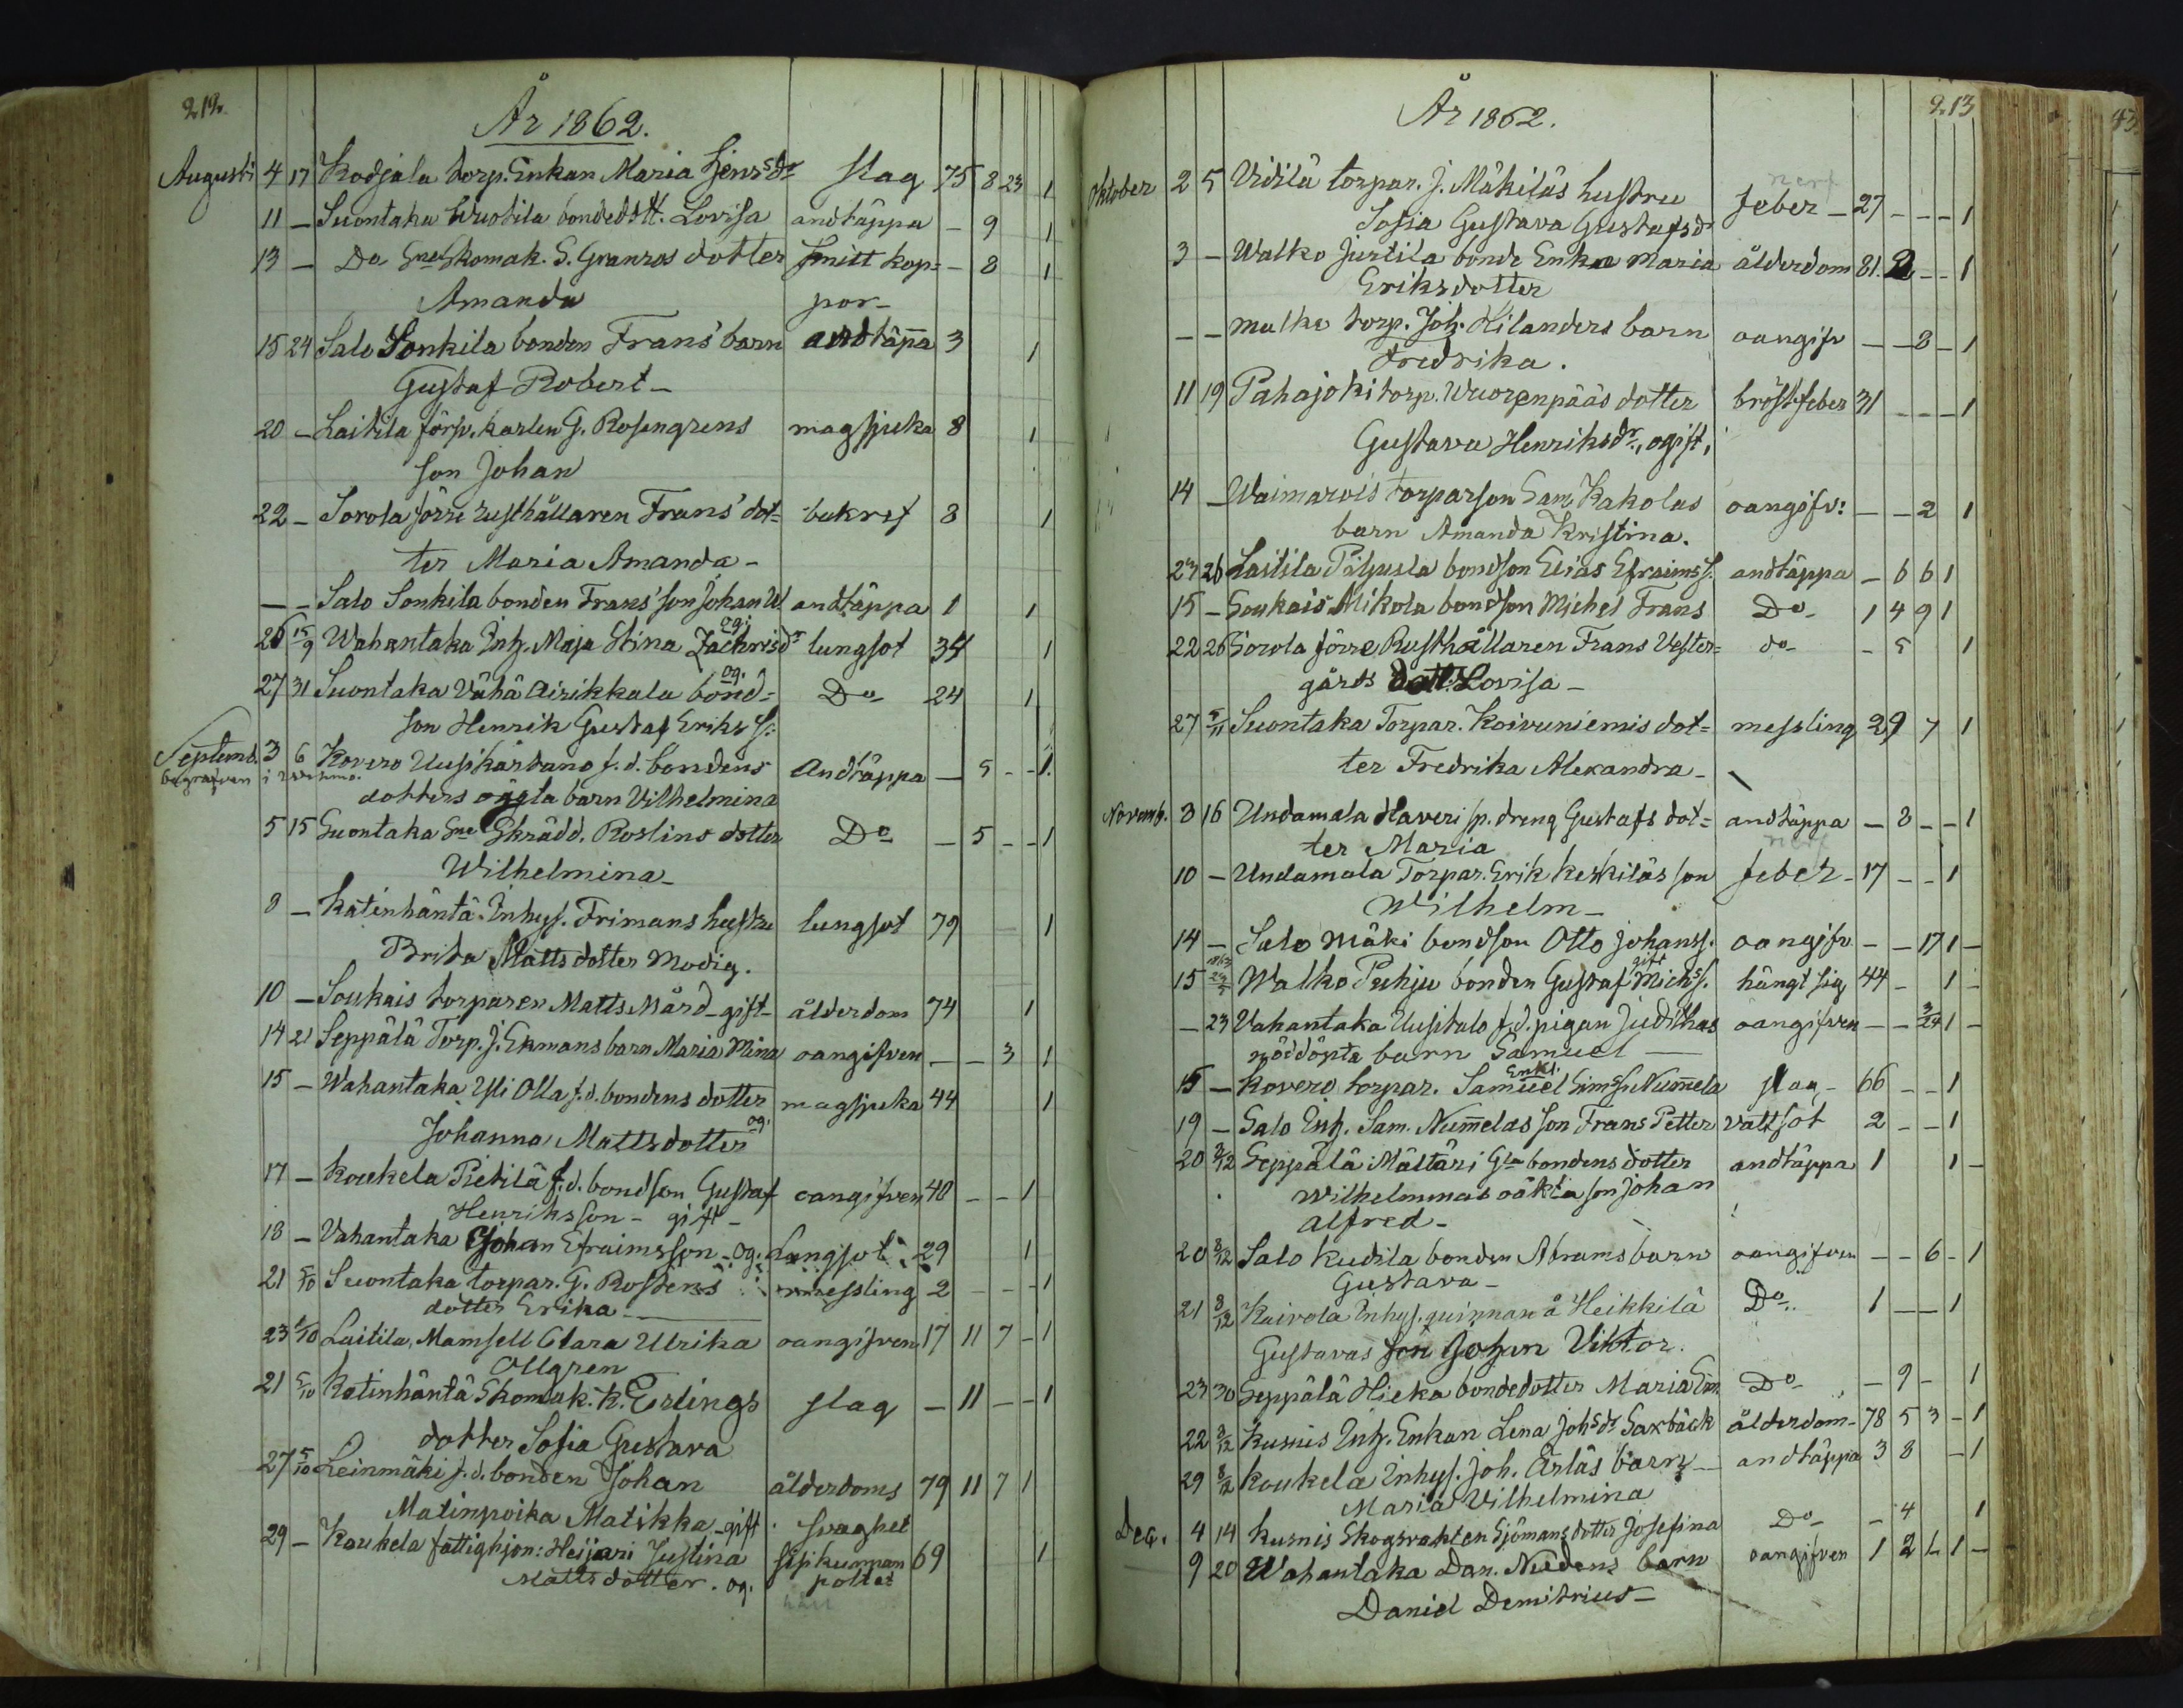 212.
År 1862.
Augusti 4 17 Kodjala torp. Enkan Maria Hensdr slag 75 8 23 1
11 — Suontaka Wuotila bondedott. Lovisa andtäppa — 9 1
13 — Do Gne Skomak. S. Granros dotter Smitt kop= — 8 1
Amanda por—
15 24 Salo Sonkila bonden Frans' barn andtäppa 3 1
Gustaf Robert—
20 — Laitila försv. karlen G. Rosengrens magsjuka 8 1
son Johan
22 — Sorola förre rusthållaren Frans' dot= bukref 8 1
ter Maria Amanda—
— — Salo Sonkila bonden Frans' son Johan W. andtäppa 1 1
26 15/9 Wahantaka Inh. Maja Stina Zachrisdr og. lungsot 34 1
27 31 Suontaka Vähä Airikkala bond= og. Do 24 1
son Henrik Gustaf Eriks s:
Septemb. 3 6 Kovero Uusikartano f.d. bondens Andtäppa — 5 — — 1
begrafven i
dotters oägta barn Vilhelmina
5 15 Suontaka Gne Skrädd. Roslins dotter Do — 5 — — 1
Wilhelmina—
8 — Katinhäntä Inhys. Frimans hustru lungsot 79 1
Brita Mattsdotter Modig.
10 — Soukais torparen Matts Mård—gift— ålderdom 74 1
14 21 Seppälä Torp. J. Ekmans barn Maria Mina oangifven — — 3 1
15 — Wahantaka Yli Olla f.d. bondens dotter magsjuka 44 1
Johanna Mattsdotter og.
17 — Koukela Pietilä f.d. bondson Gustaf oangifven 40 — — 1
Henriksson— gift—
18 — Vahantaka Johan Efraimsson—og. Lungsot 29 1
21 5/10 Suontaka torpar. G. Rostens messling 2 — — 1
dotter Erika
23 1/10 Laitila, Mamsell Clara Ulrika oangifven 17 11 7 — 1
Ollgren
21 5/10 Katinhäntä Skomak. K. Erlings slag — 11 — — 1
dotter Sofia Gustava
27 5/10 Leinmäki f.d. bonden Johan ålderdoms 79 11 7 1
Matinpoika Matikka—gift svaghet
29 — Koukela fattighjon: Heijari Justina 69 1
Mattsdotter. og.
213
År 1862.
Oktober 2 5 Vidilä torpar. J. Mäkiläs hustru nerf feber — 27 — — — 1
Sofia Gustava Gustafsdr
3 — Walko Jutila bonde Enka Maria ålderdom 81. 2 — — 1
Eriksdotter
— — Malko torp. Joh. Hilanders barn oangifv — — 8 — 1
Fredrika.
11 19 Pahajoki torp. Wuorenpääs dotter bröstfeber 31 — — — 1
Gustava Henriksdr., ogift,
14 — Waimarois torparson Sam. Kakolas oangifv: — — 2 1
barn Amanda Kristina.
23 26 Laitila Päljusla bondson Elias Efraims s. andtäppa — 6 6 1
15 — Soukais Mikola bondson Michel Frans Do— 1 4 9 1
22 26 Sorola förre Rusthållaren Frans Vester= do— — 5 1
gårds dott. Lovisa—
27 5/11 Suontaka Torpar. Koivuniemis dot= messling 29 7 1
ter Fredrika Alexandra—
Novemb. 3 16 Undamala Haveri sp. dreng Gustafs dot= andtäppa — 3 — — 1
ter Maria
10 — Undamala Torpar. Erik Keskiläs son nerf feber— 17 — — 1
Wilhelm—
14 — Salo Mäki bondson Otto Johanss. oangifv — — 17 1 —
15 Walko Puhju bonden Gustaf Michss. gift hängt sig 44 — 1 —
— 23 Vahantaka Uusitalo f.d. pigan Judithas oangifven — — 3/24 1 —
nöddöpta barn Samuel —
15 — Kovero torpar. Samuel Simss. Nummela Enkl. slag— 66 — — 1
19 — Salo Inh. Sam. Nummelas son Frans Petter vattsot 2 — — 1
20 2/12 Seppälä Mältäri Gla bondens dotter andtäppa 1 1 —
Wilhelminas oäkta son Johan
Alfred—
20 8/12 Salo Kudila bonden Abrams barn oangifven — — 6 — 1
Gustava—
21 8/12 Kaivola Inhys. quinnan å Heikkilä Do.. 1 — — 1
Gustavas son Johan Viktor.
23 30 Seppälä Hieka bondedotter Maria Em. Do— — 9 — 1
22 8/12 Kusnis Inh. Enkan Lena Johsdr Saxbäck ålderdom— 78 5 3 — 1
29 8/12 Koukela Inhys. Joh. Ärläs barn— andtäppa 3 8 — 1
Maria Vilhelmina
Dec. 4 14 Kusnis Skogsvakten Sjömans dotter Josefina Do— — 4 1
9 20 Wahantaka Dan. Nudens barn oangifven 1 2 1 1 —
Daniel Demitrius—